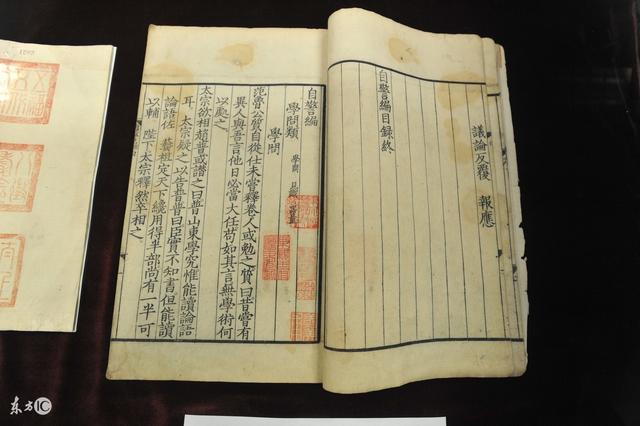 議論反覆 報應
自警編目録終
自警編
學問類 學問 見識
學問
范魯公質自從仕未嘗釋卷人或勉之質曰昔嘗有
異人與吾言他日必當大任苟如其言無學術何
以處之
太宗欲相趙普或譖之曰普山東學究惟能讀論語
耳 太宗疑之以告普普曰臣實不知書但能讀
論語佐 藝祖定天下纔用得半部尚有一半可
以輔 陛下太宗釋然卒相之
东方IC